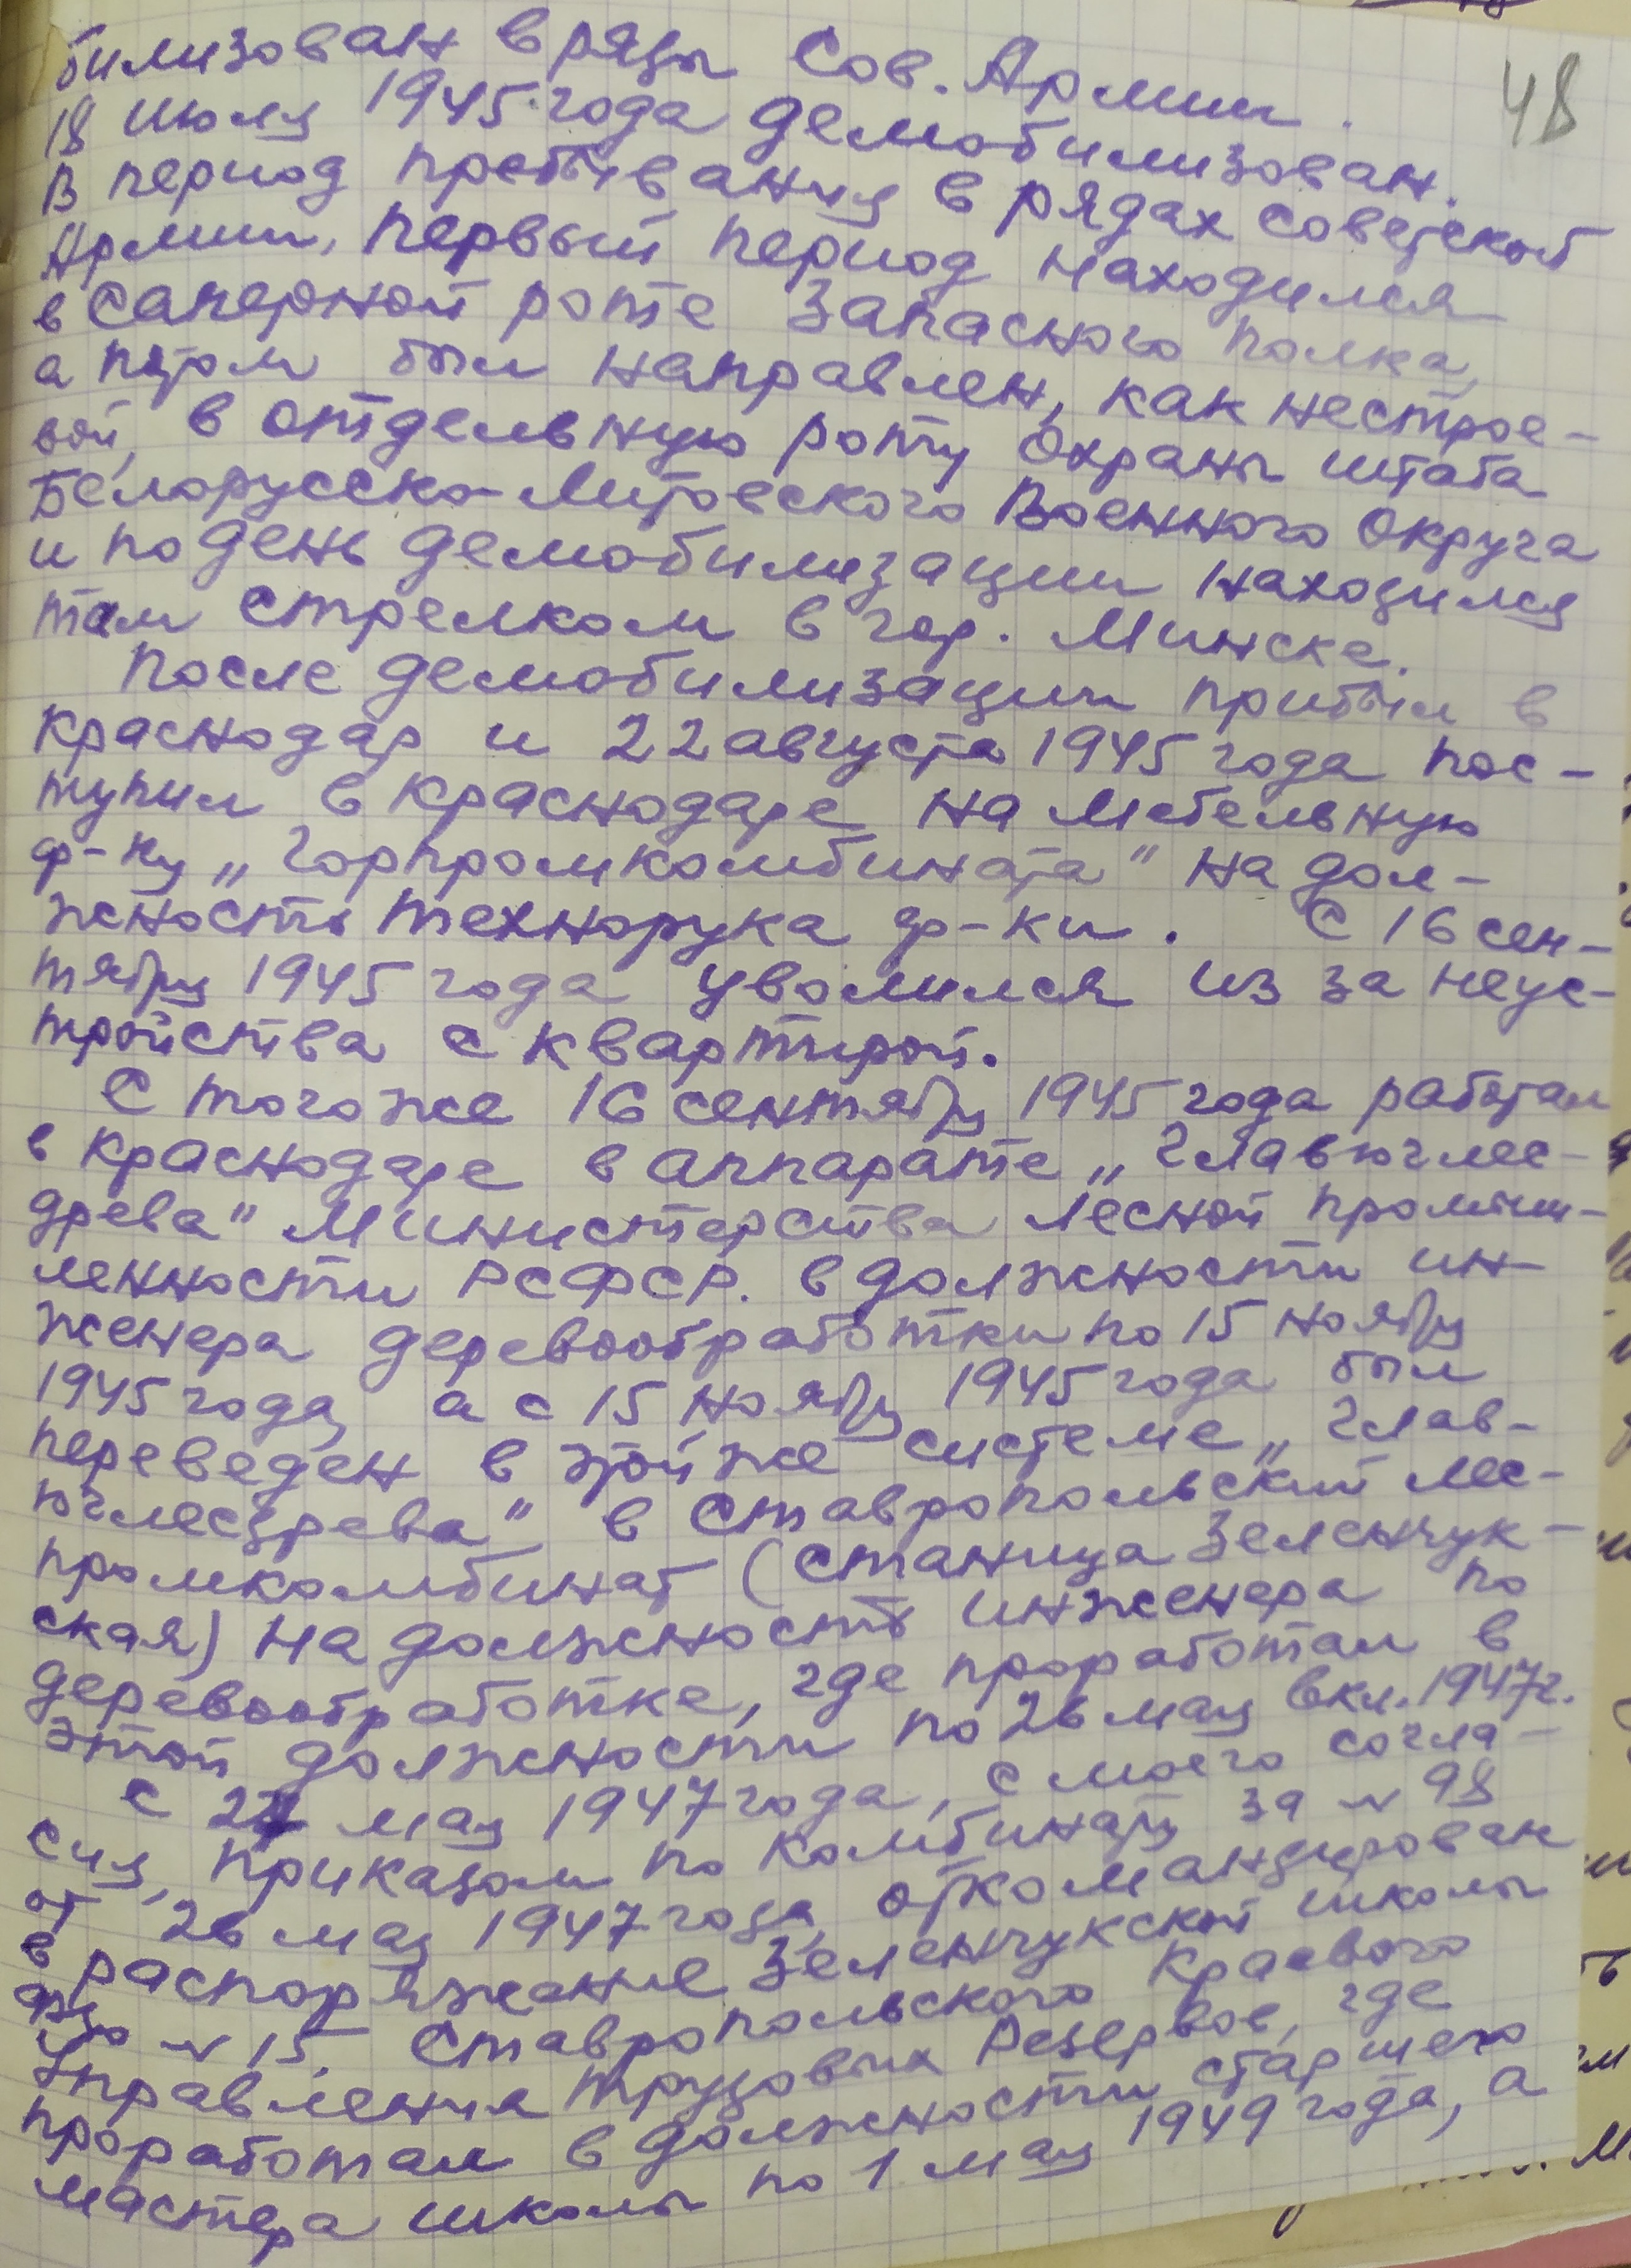 48
билизован в ряды Сов. Армии.
18 июля 1945 года демобилизован.
В период пребывания в рядах советской
Армии, первый период находился
в саперной роте запасного полка,
а потом был направлен, как нестрое-
вой, в отдельную роту охраны штаба
Белорусско-Литовского Военного Округа
и по день демобилизации находился
там стрелком в гор. Минске.
После демобилизации прибыл в
Краснодар и 22 августа 1945 года пос-
тупил в Краснодаре на мебельную
ф-ку „Горпромкомбината" на дол-
жность технорука ф-ки. С 16 сен-
тября 1945 года уволился из за неус-
тройства с квартирой.
С того же 16 сентября 1945 года работал
в Краснодаре в аппарате „Главюглес-
древа" Министерства Лесной промыш-
ленности РСФСР. в должности ин-
женера деревообработки по 15 ноября
1945 года, а с 15 ноября 1945 года был
переведен в этой же системе „Глав-
юглесдрева" в Ставропольский лес-
промкомбинат (станица Зеленчук-
ская) на должность инженера по
деревообработке, где проработал в
этой должности по 26 мая вкл. 1947г.
С 27 мая 1947 года, с моего согла-
сия, приказом по комбинату за № 98
от 26 мая 1947 года, откомандирован
в распоряжение Зеленчукской школы
фзо № 15, Ставропольского Краевого
Управления трудовых Резервов, где
проработал в должности старшего
мастера школы по 1 мая 1949 года, а